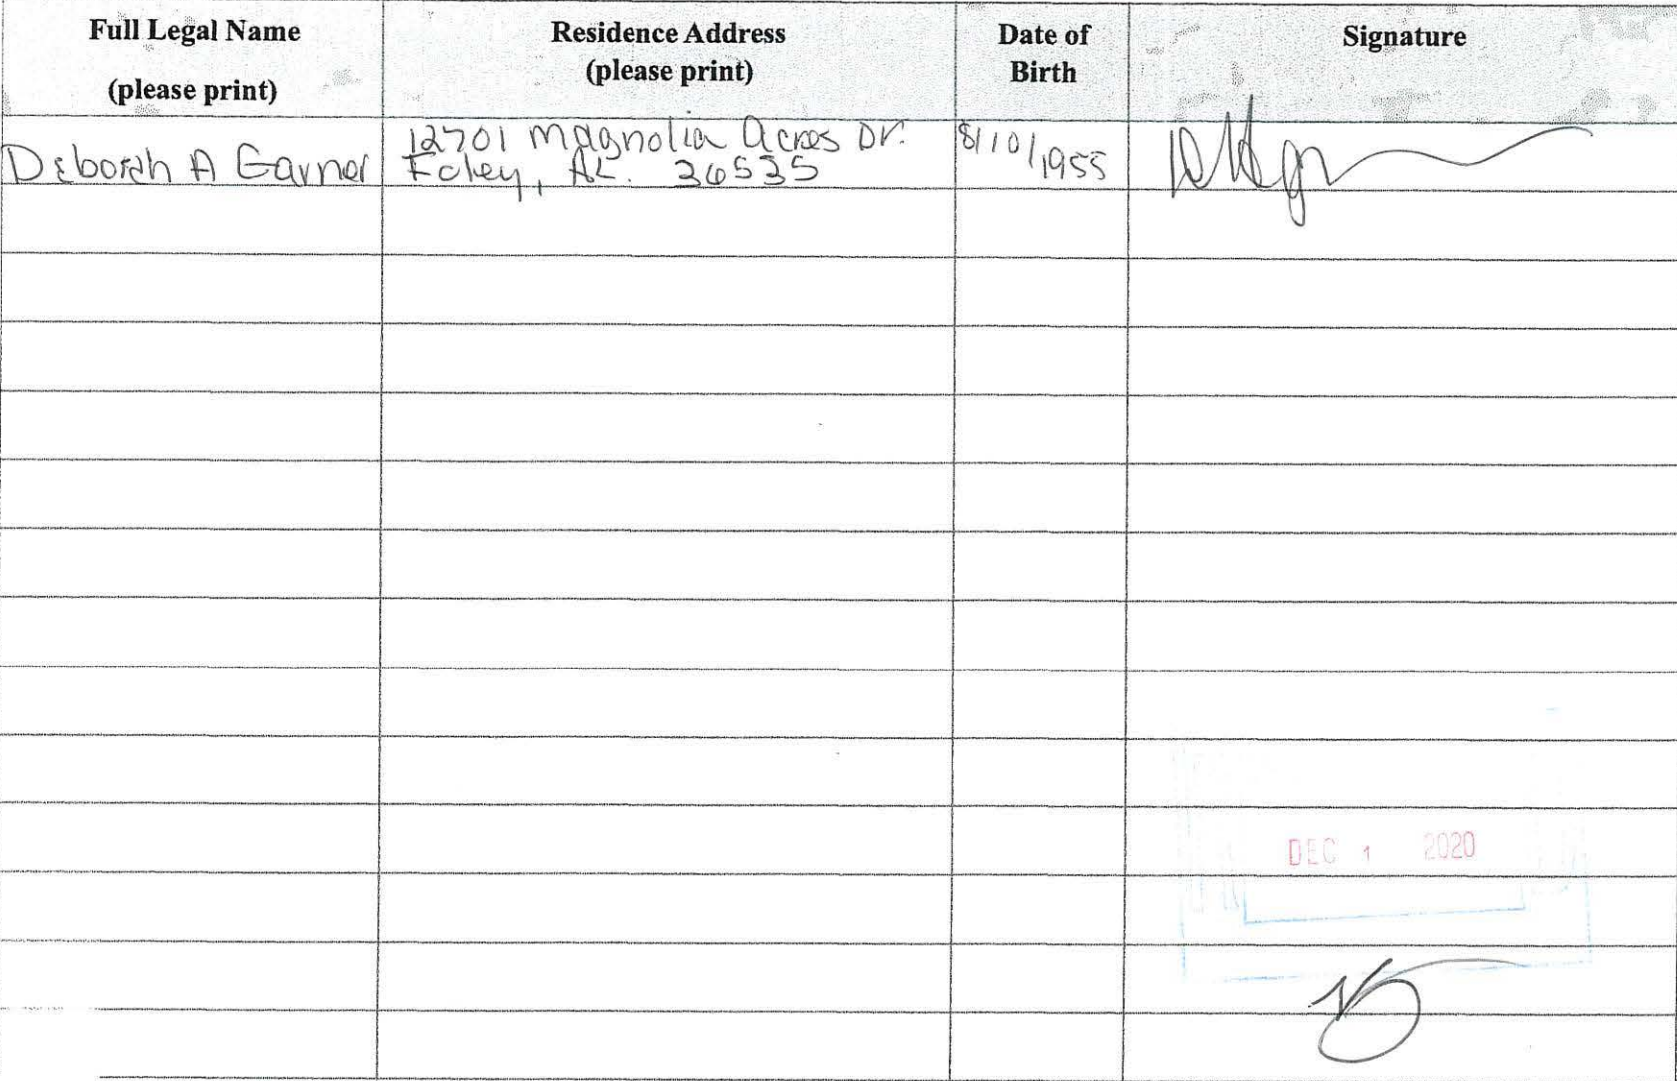 Full Legal Name
(please print)
Residence Address
(please print)
Date of
Birth
Signature
Deborah A Garner
12701 Magnolia Acres Dr.
Foley, AL. 36535
8/10/1955
DEC 1 2020